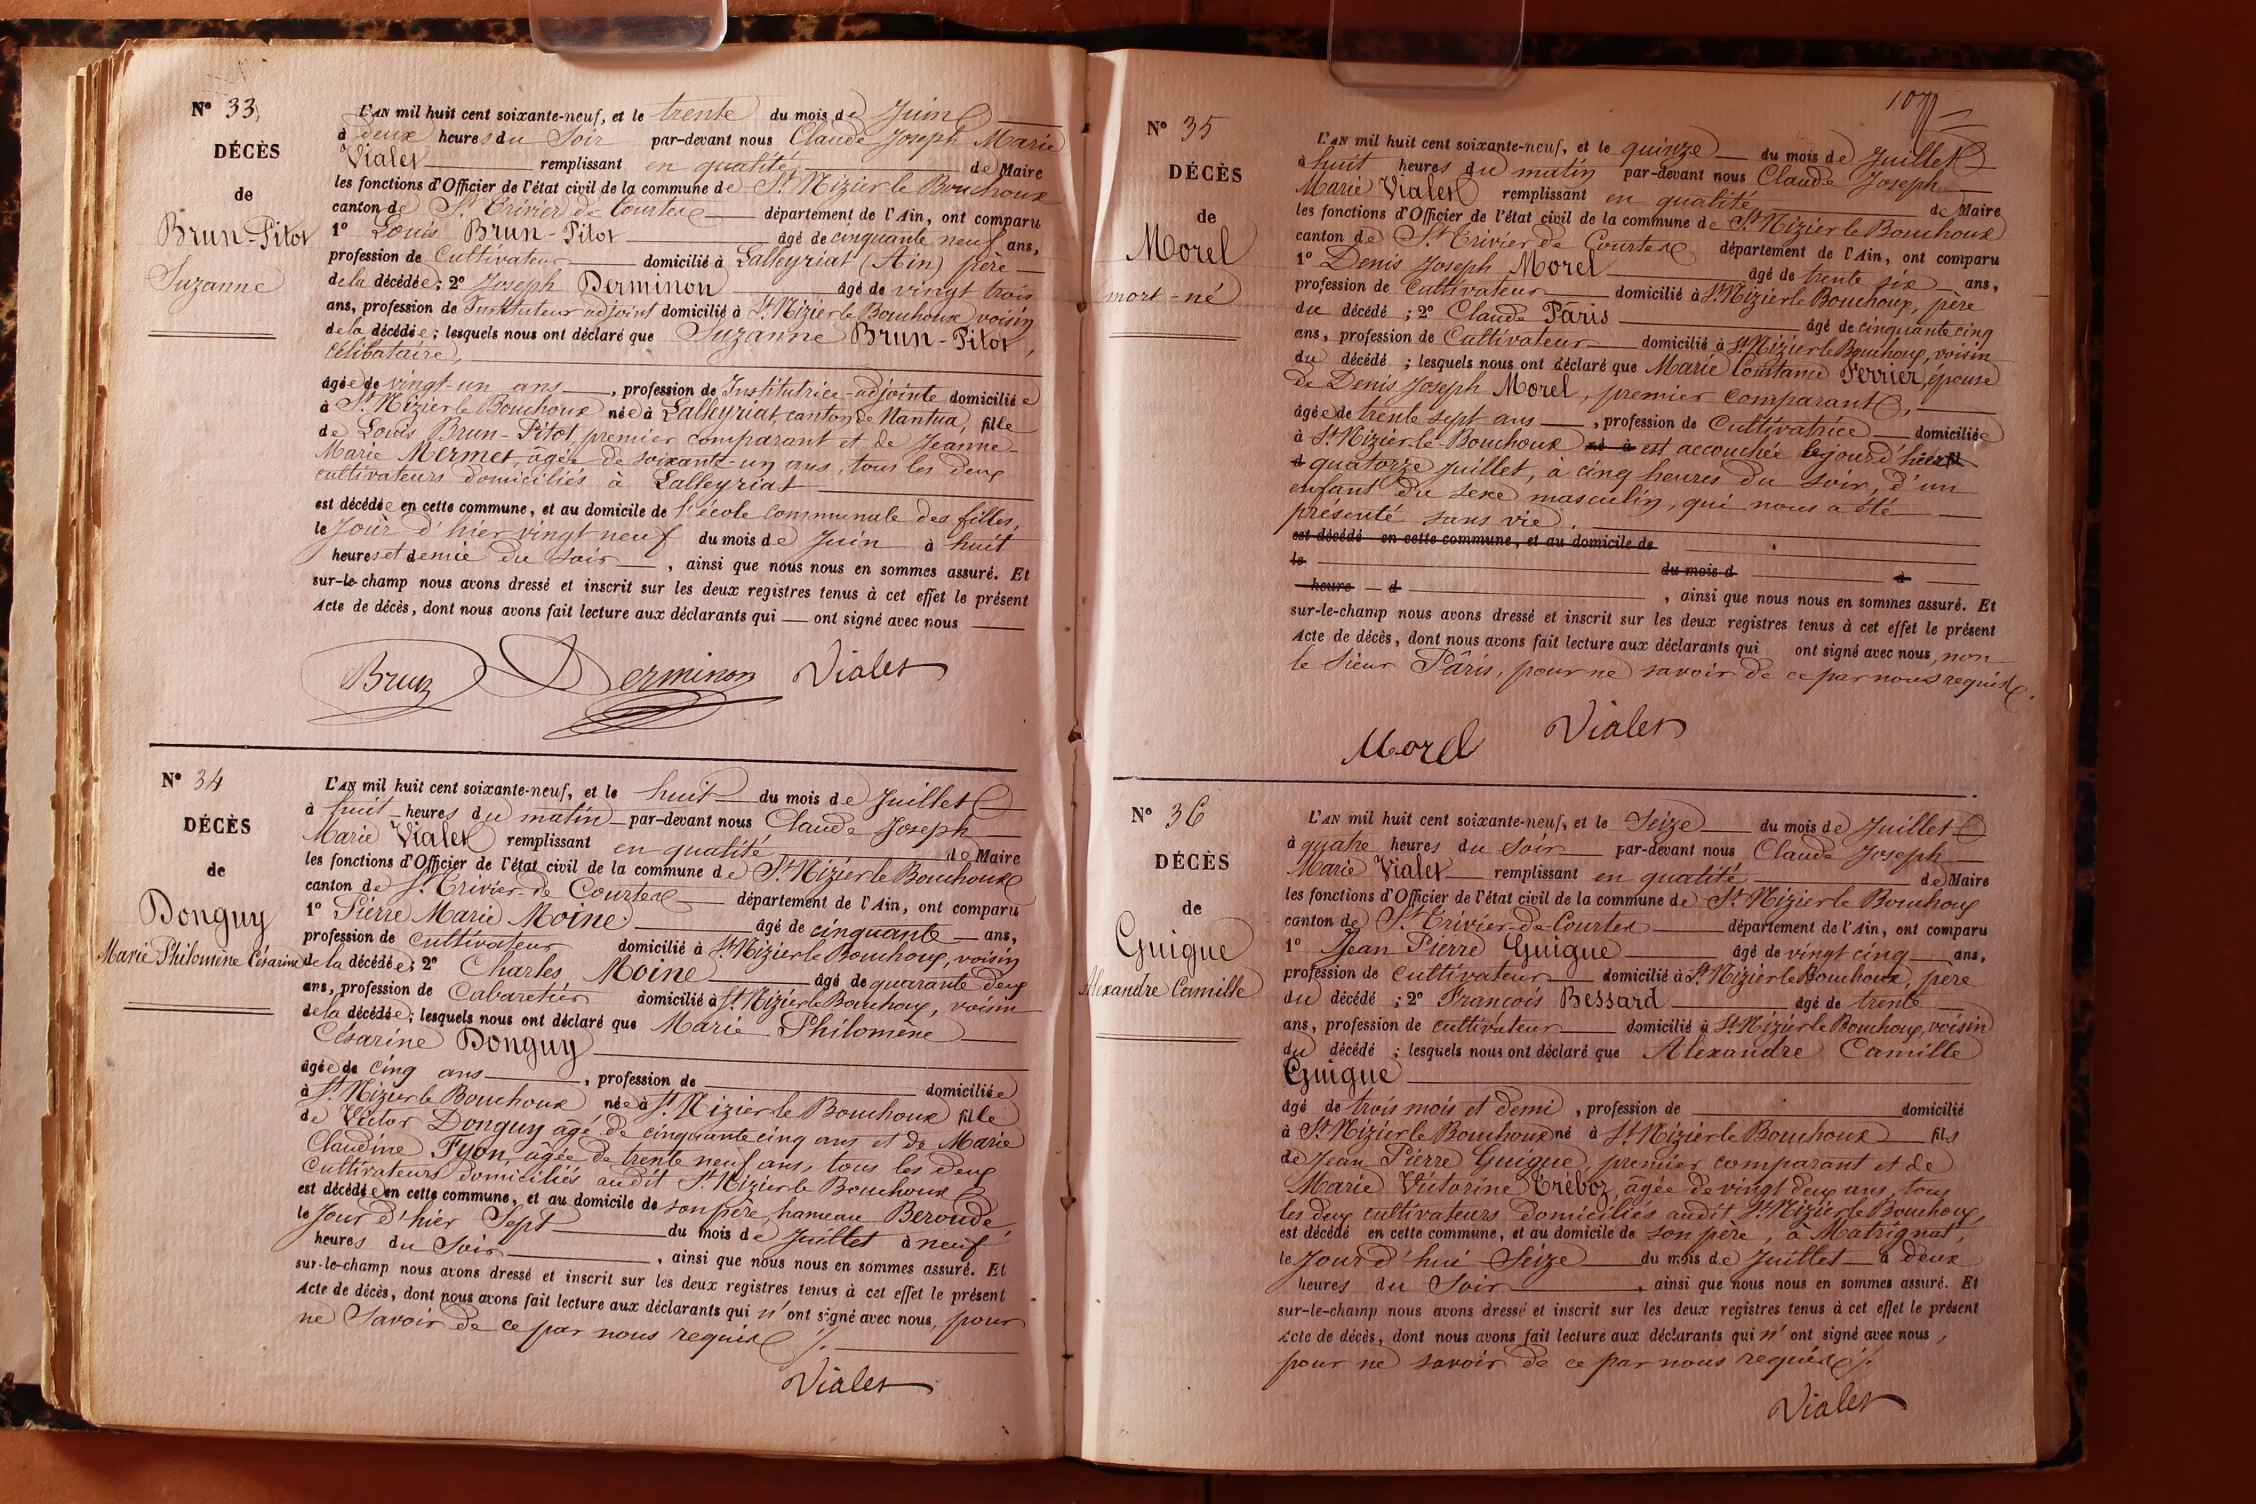 N° 33
DÉCÈS
de
Brun-Pitot
Suzanne
L'AN mil huit cent soixante-neuf, et le trente du mois de Juin
à deux heures du Soir par-devant nous Claude Joseph Marie
Vialet remplissant en qualité de Maire
les fonctions d'Officier de l'état civil de la commune de St Nizier le Bouchoux
canton de St Trivier de Courtes département de l'Ain, ont comparu
1° Louis Brun-Pitot âgé de cinquante neuf ans,
profession de Cultivateur domicilié à Lalleyriat (Ain) père
de la décédée; 2° Joseph Derminon âgé de vingt trois
ans, profession de Instituteur adjoint domicilié à St Nizier le Bouchoux voisin
de la décédée; lesquels nous ont déclaré que Suzanne Brun-Pitot,
célibataire,
âgée de vingt-un ans, profession de Institutrice-adjointe domiciliée
à St Nizier le Bouchoux née à Lalleyriat, canton de Nantua, fille
de Louis Brun-Pitot, premier comparant et de Jeanne-
Marie Mermet, âgée de soixante-un ans, tous les deux
cultivateurs domiciliés à Lalleyriat
est décédée en cette commune, et au domicile de l'école communale des filles,
le Jour d'hier vingt neuf du mois de Juin à huit
heures et demie du soir, ainsi que nous nous en sommes assuré. Et
sur-le-champ nous avons dressé et inscrit sur les deux registres tenus à cet effet le présent
Acte de décès, dont nous avons fait lecture aux déclarants qui ont signé avec nous
Brun Derminon Vialet
N° 34
DÉCÈS
de
Donguy
Marie Philomène Césarine
L'AN mil huit cent soixante-neuf, et le huit du mois de Juillet
à huit heures du matin par-devant nous Claude Joseph
Marie Vialet remplissant en qualité de Maire
les fonctions d'Officier de l'état civil de la commune de St Nizier le Bouchoux
canton de St Trivier-de Courtes département de l'Ain, ont comparu
1° Pierre Marie Moine âgé de cinquante ans,
profession de cultivateur domicilié à St Nizier le Bouchoux, voisin
de la décédée; 2° Charles Moine âgé de quarante deux
ans, profession de Cabaretier domicilié à St Nizier le Bouchoux, voisin
de la décédée; lesquels nous ont déclaré que Marie Philomène
Césarine Donguy
âgée de cinq ans, profession de domiciliée
à St Nizier le Bouchoux née à St Nizier le Bouchoux fille
de Victor Donguy âgé de cinquante cinq ans et de Marie
Claudine Fyon, âgée de trente neuf ans, tous les deux
Cultivateurs domiciliés audit St Nizier le Bouchoux
est décédée en cette commune, et au domicile de son père, hameau Beroude,
le Jour d'hier Sept du mois de Juillet à neuf
heures du Soir, ainsi que nous nous en sommes assuré. Et
sur-le-champ nous avons dressé et inscrit sur les deux registres tenus à cet effet le présent
Acte de décès, dont nous avons fait lecture aux déclarants qui n'ont signé avec nous, pour
ne savoir de ce par nous requis ./.
Vialet
107
N° 35
DÉCÈS
de
Morel
mort-né
L'AN mil huit cent soixante-neuf, et le quinze du mois de Juillet
à huit heures du matin par-devant nous Claude Joseph
Marie Vialet remplissant en qualité de Maire
les fonctions d'Officier de l'état civil de la commune de St Nizier le Bouchoux
canton de St Trivier de Courtes département de l'Ain, ont comparu
1° Denis Joseph Morel âgé de trente six ans,
profession de Cultivateur domicilié à St Nizier le Bouchoux, père
du décédé; 2° Claude Pâris âgé de cinquante cinq
ans, profession de Cultivateur domicilié à St Nizier le Bouchoux, voisin
du décédé; lesquels nous ont déclaré que Marie Constance Ferrier, épouse
de Denis Joseph Morel, premier comparant,
âgée de trente sept ans, profession de Cultivatrice domiciliée
à St Nizier-le Bouchoux né à est accouchée le jour d'hier
d quatorze Juillet, à cinq heures du soir, d'un
enfant du sexe masculin, qui nous a été
présenté sans vie.
est décédé en cette commune, et au domicile de
le du mois d à
heure d, ainsi que nous nous en sommes assuré. Et
sur-le-champ nous avons dressé et inscrit sur les deux registres tenus à cet effet le présent
Acte de décès, dont nous avons fait lecture aux déclarants qui ont signé avec nous, non
le sieur Pâris, pour ne savoir de ce par nous requis.
Morel Vialet
N° 36
DÉCÈS
de
Guigue
Alexandre Camille
L'AN mil huit cent soixante-neuf, et le Seize du mois de Juillet
à quatre heures du Soir par-devant nous Claude Joseph
Marie Vialet remplissant en qualité de Maire
les fonctions d'Officier de l'état civil de la commune de St Nizier le Bouchoux
canton de St Trivier-de-Courtes département de l'Ain, ont comparu
1° Jean Pierre Guigue âgé de vingt cinq ans,
profession de cultivateur domicilié à St Nizier le Bouchoux, père
du décédé; 2° François Bessard âgé de trente
ans, profession de cultivateur domicilié à St Nizier le Bouchoux, voisin
du décédé; lesquels nous ont déclaré que Alexandre Camille
Guigue
âgé de trois mois et demi, profession de domicilié
à St Nizier le Bouchoux né à St Nizier le Bouchoux fils
de Jean Pierre Guigue, premier comparant et de
Marie Victorine Tréboz, âgée de vingt deux ans, tous
les deux cultivateurs domiciliés audit St Nizier le Bouchoux,
est décédé en cette commune, et au domicile de son père, à Matrignat,
le Jour d'hui Seize du mois de Juillet à deux
heures du Soir, ainsi que nous nous en sommes assuré. Et
sur-le-champ nous avons dressé et inscrit sur les deux registres tenus à cet effet le présent
Acte de décès, dont nous avons fait lecture aux déclarants qui n'ont signé avec nous,
pour ne savoir de ce par nous requis ./.
Vialet